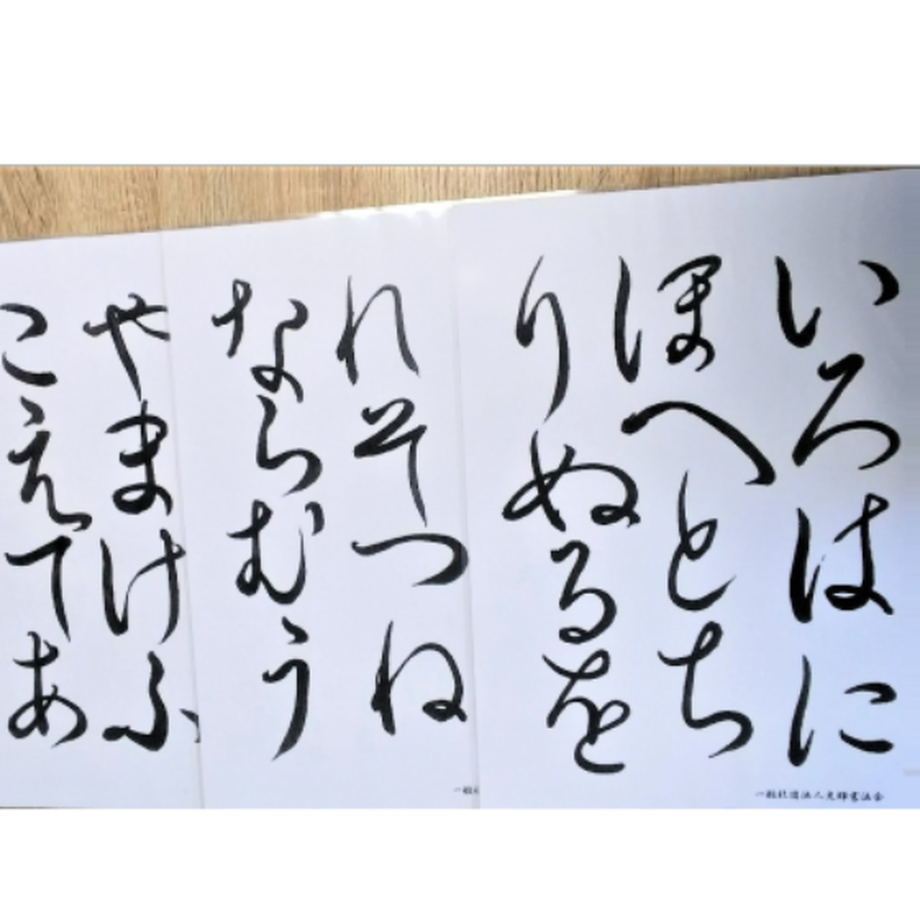 いろはに
ほへとち
りぬるを
一般社団法人
れそつね
ならむう
一般
やまけふ
こえてあ